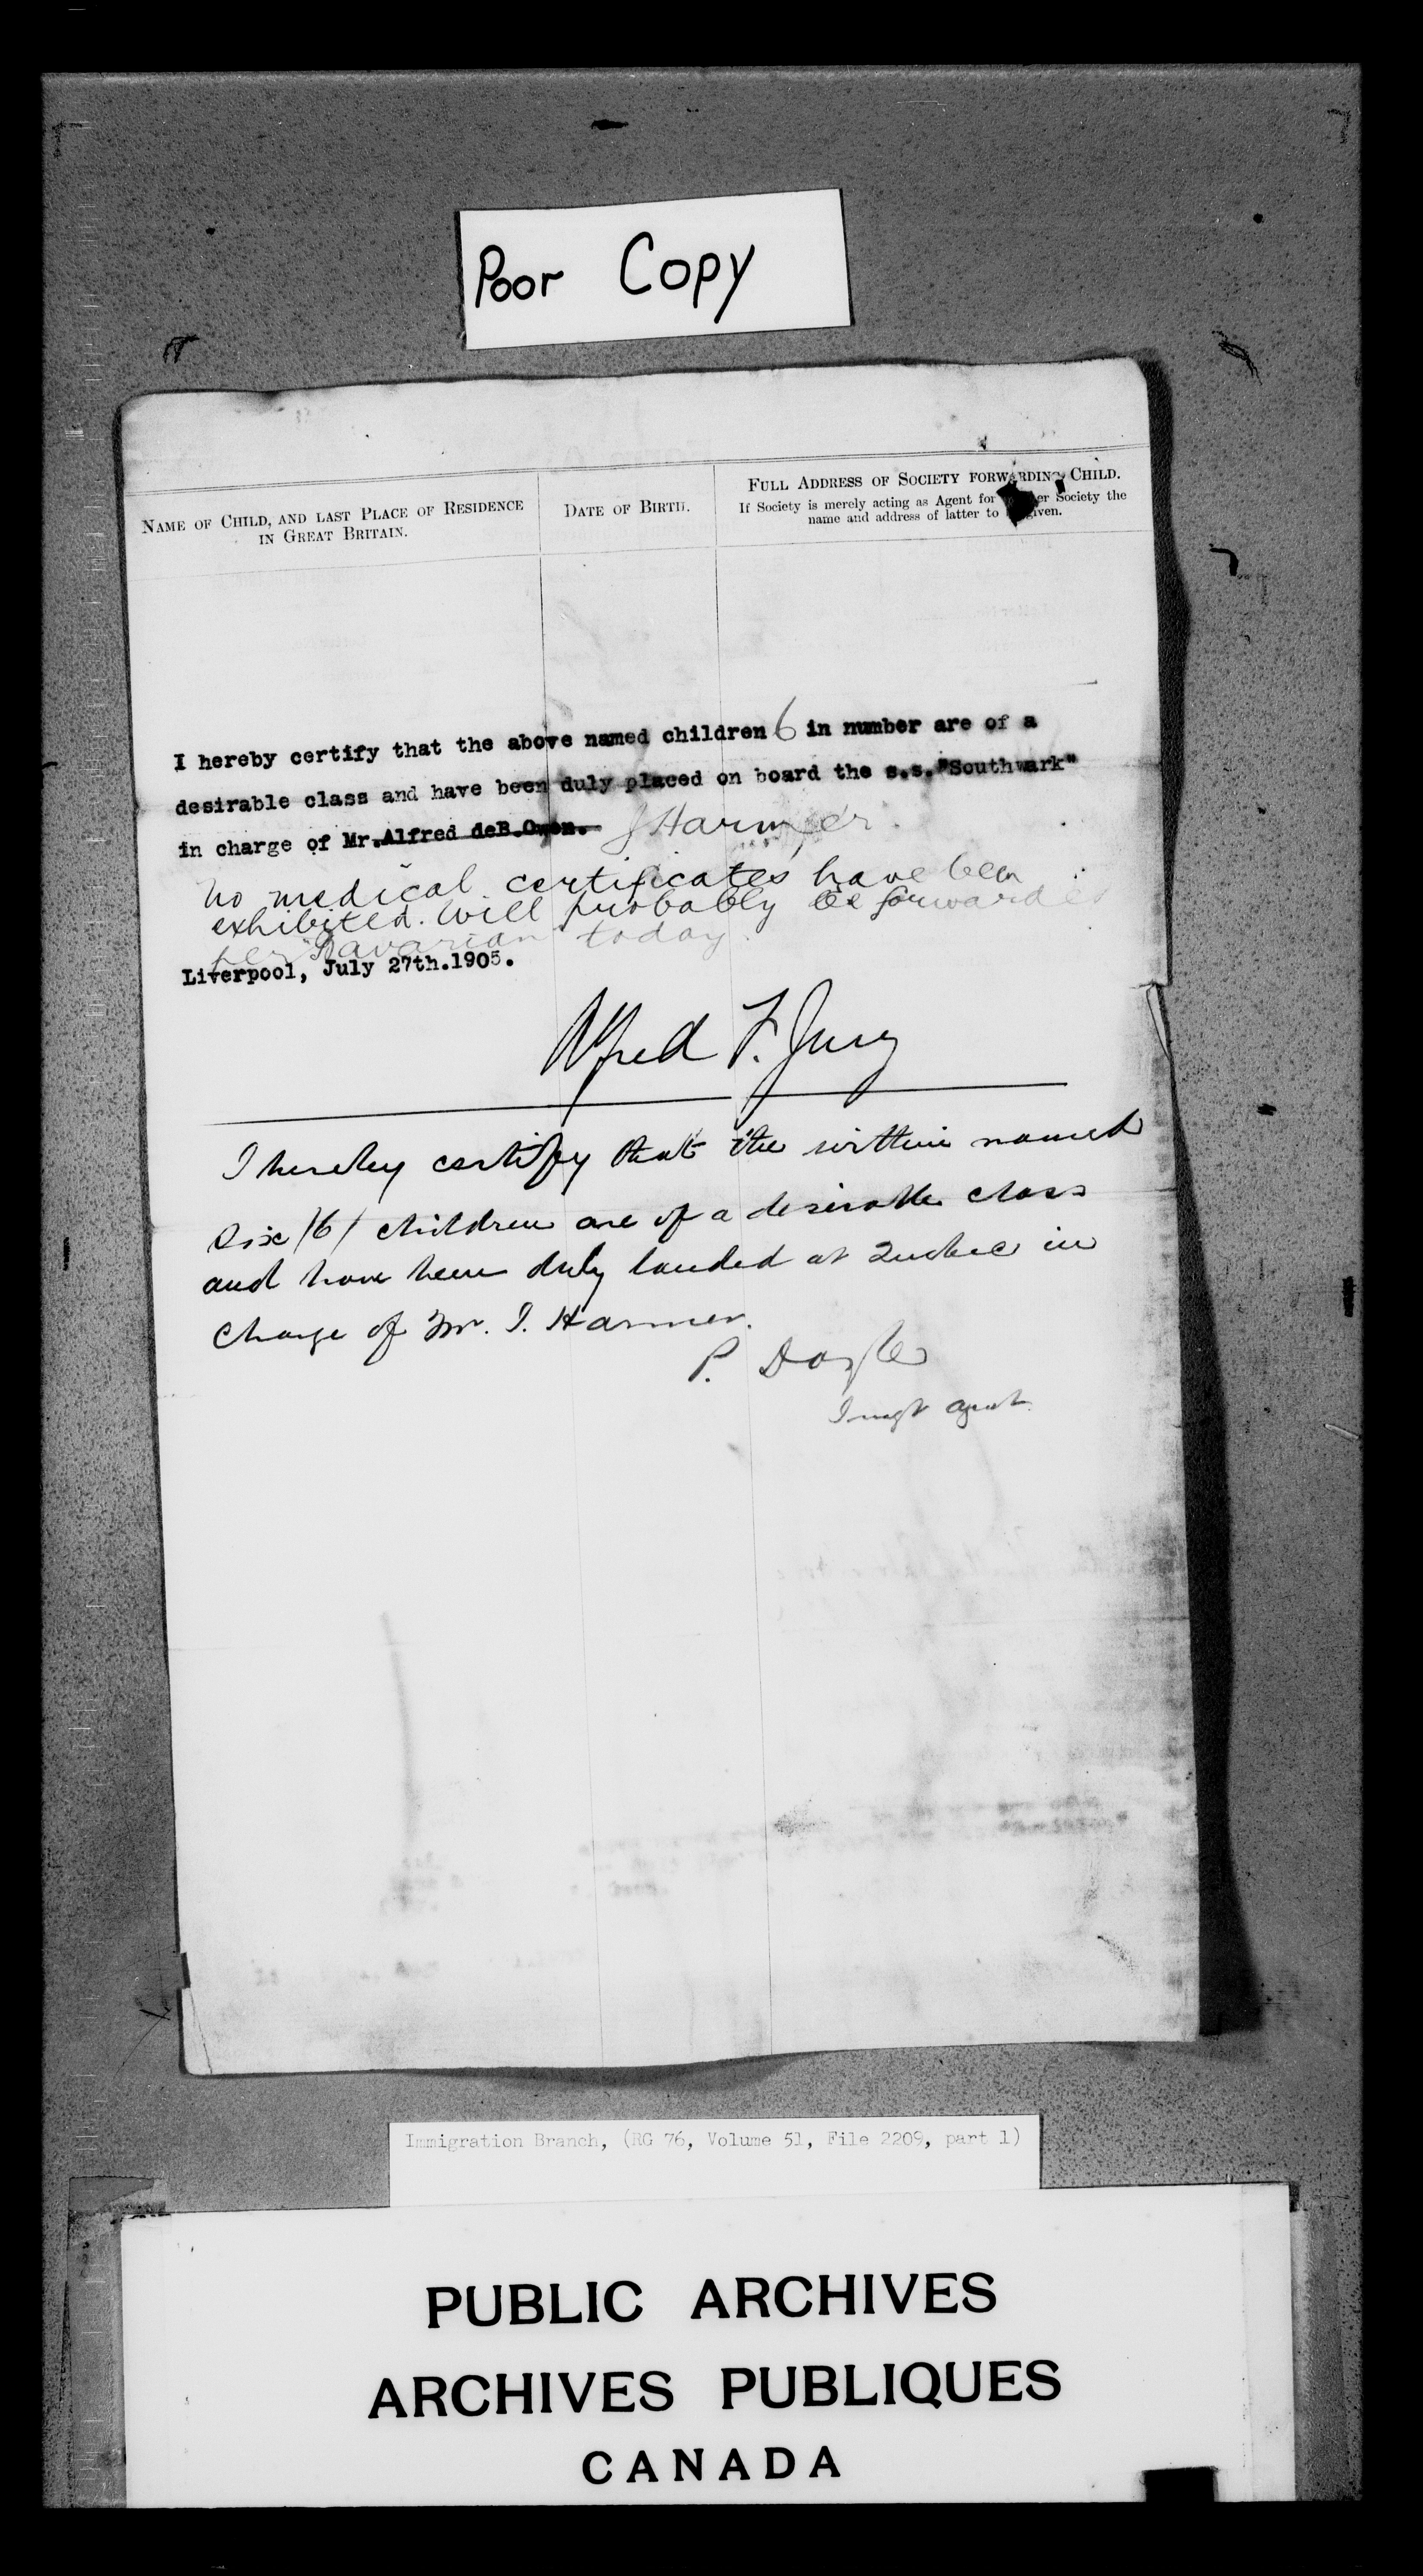 Poor Copy
NAME OF CHILD, AND LAST PLACE OF RESIDENCE
IN GREAT BRITAIN.
DATE OF BIRTH.
FULL ADDRESS OF SOCIETY FORWARDING CHILD.
If Society is merely acting as Agent for er Society the
name and address of latter to given.
I hereby certify that the above named children 6 in number are of a
desirable class and have been duly placed on board the s.s."Southwark"
in charge of Mr.Alfred deB.Owen. J Harmer.
No medical certificates have been
exhibited. Will probably be forwarded
per "Bavarian" today.
Liverpool, July 27th.1905.
Alfred F. Jury
I hereby certify that the within named
Six /6/ children are of a desirable class
and have been duly landed at Quebec in
charge of Mr. J. Harmer.
P. Doyle
Immgt agent.
Immigration Branch, (RG 76, Volume 51, File 2209, part 1)
PUBLIC ARCHIVES
ARCHIVES PUBLIQUES
CANADA